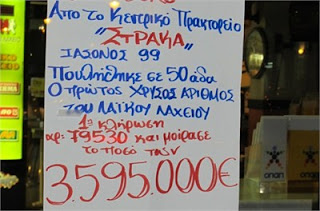 Από το Κεντρικό Πρακτορείο
"ΣΤΡΑΚΑ"
ΙΑΣΟΝΟΣ 99
Πουλήθηκε σε 50άδα
Ο πρώτος ΧΡΥΣΟΣ ΑΡΙΘΜΟΣ
του ΛΑΪΚΟΥ ΛΑΧΕΙΟΥ
1η κλήρωση
αρ: 79530 και μοίρασε
το ποσό των
3.595.000€
οπαπ
οπαπ